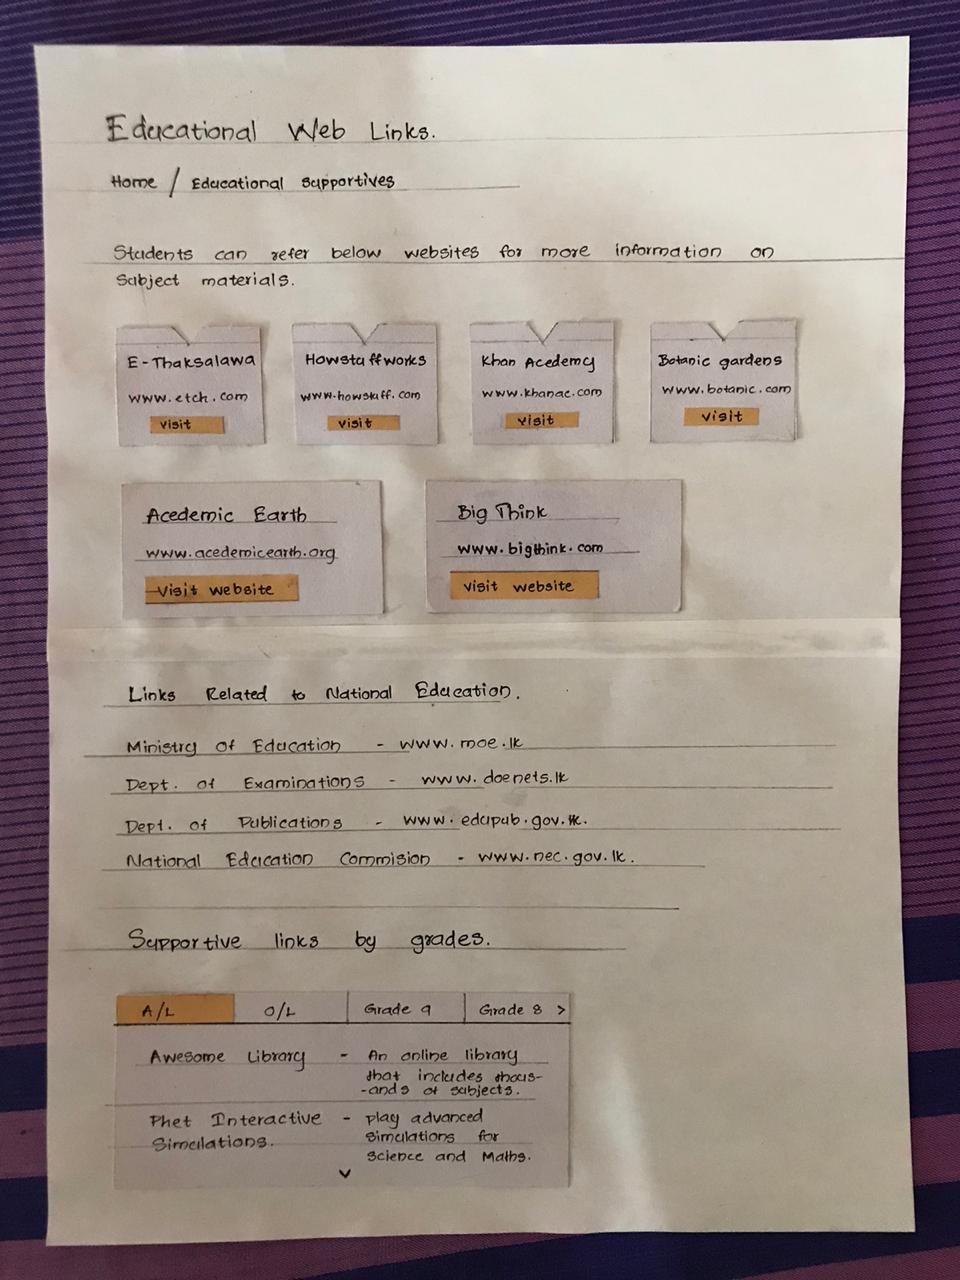 Educational Web Links.
Home / Educational Supportives
Students can refer below websites for more information on
Subject materials.
E-Thaksalawa
www.etch.com
visit
Howstuffworks
www.howstuff.com
visit
Khan Acedemy
www.khanac.com
visit
Botanic gardens
www.botanic.com
visit
Acedemic Earth
www.acedemicearth.org
Visit website
Big Think
www.bigthink.com
visit website
Links Related to National Education.
Ministry of Education - www.moe.lk
Dept. of Examinations - www.doenets.lk
Dept. of Publications - www.edupub.gov.lk.
National Education Commision - www.nec.gov.lk.
Supportive links by grades.
A/L O/L Grade 9 Grade 8 >
Awesome Library - An online library
that includes thous-
-ands of subjects.
Phet Interactive - play advanced
Simulations. simulations for
Science and Maths.